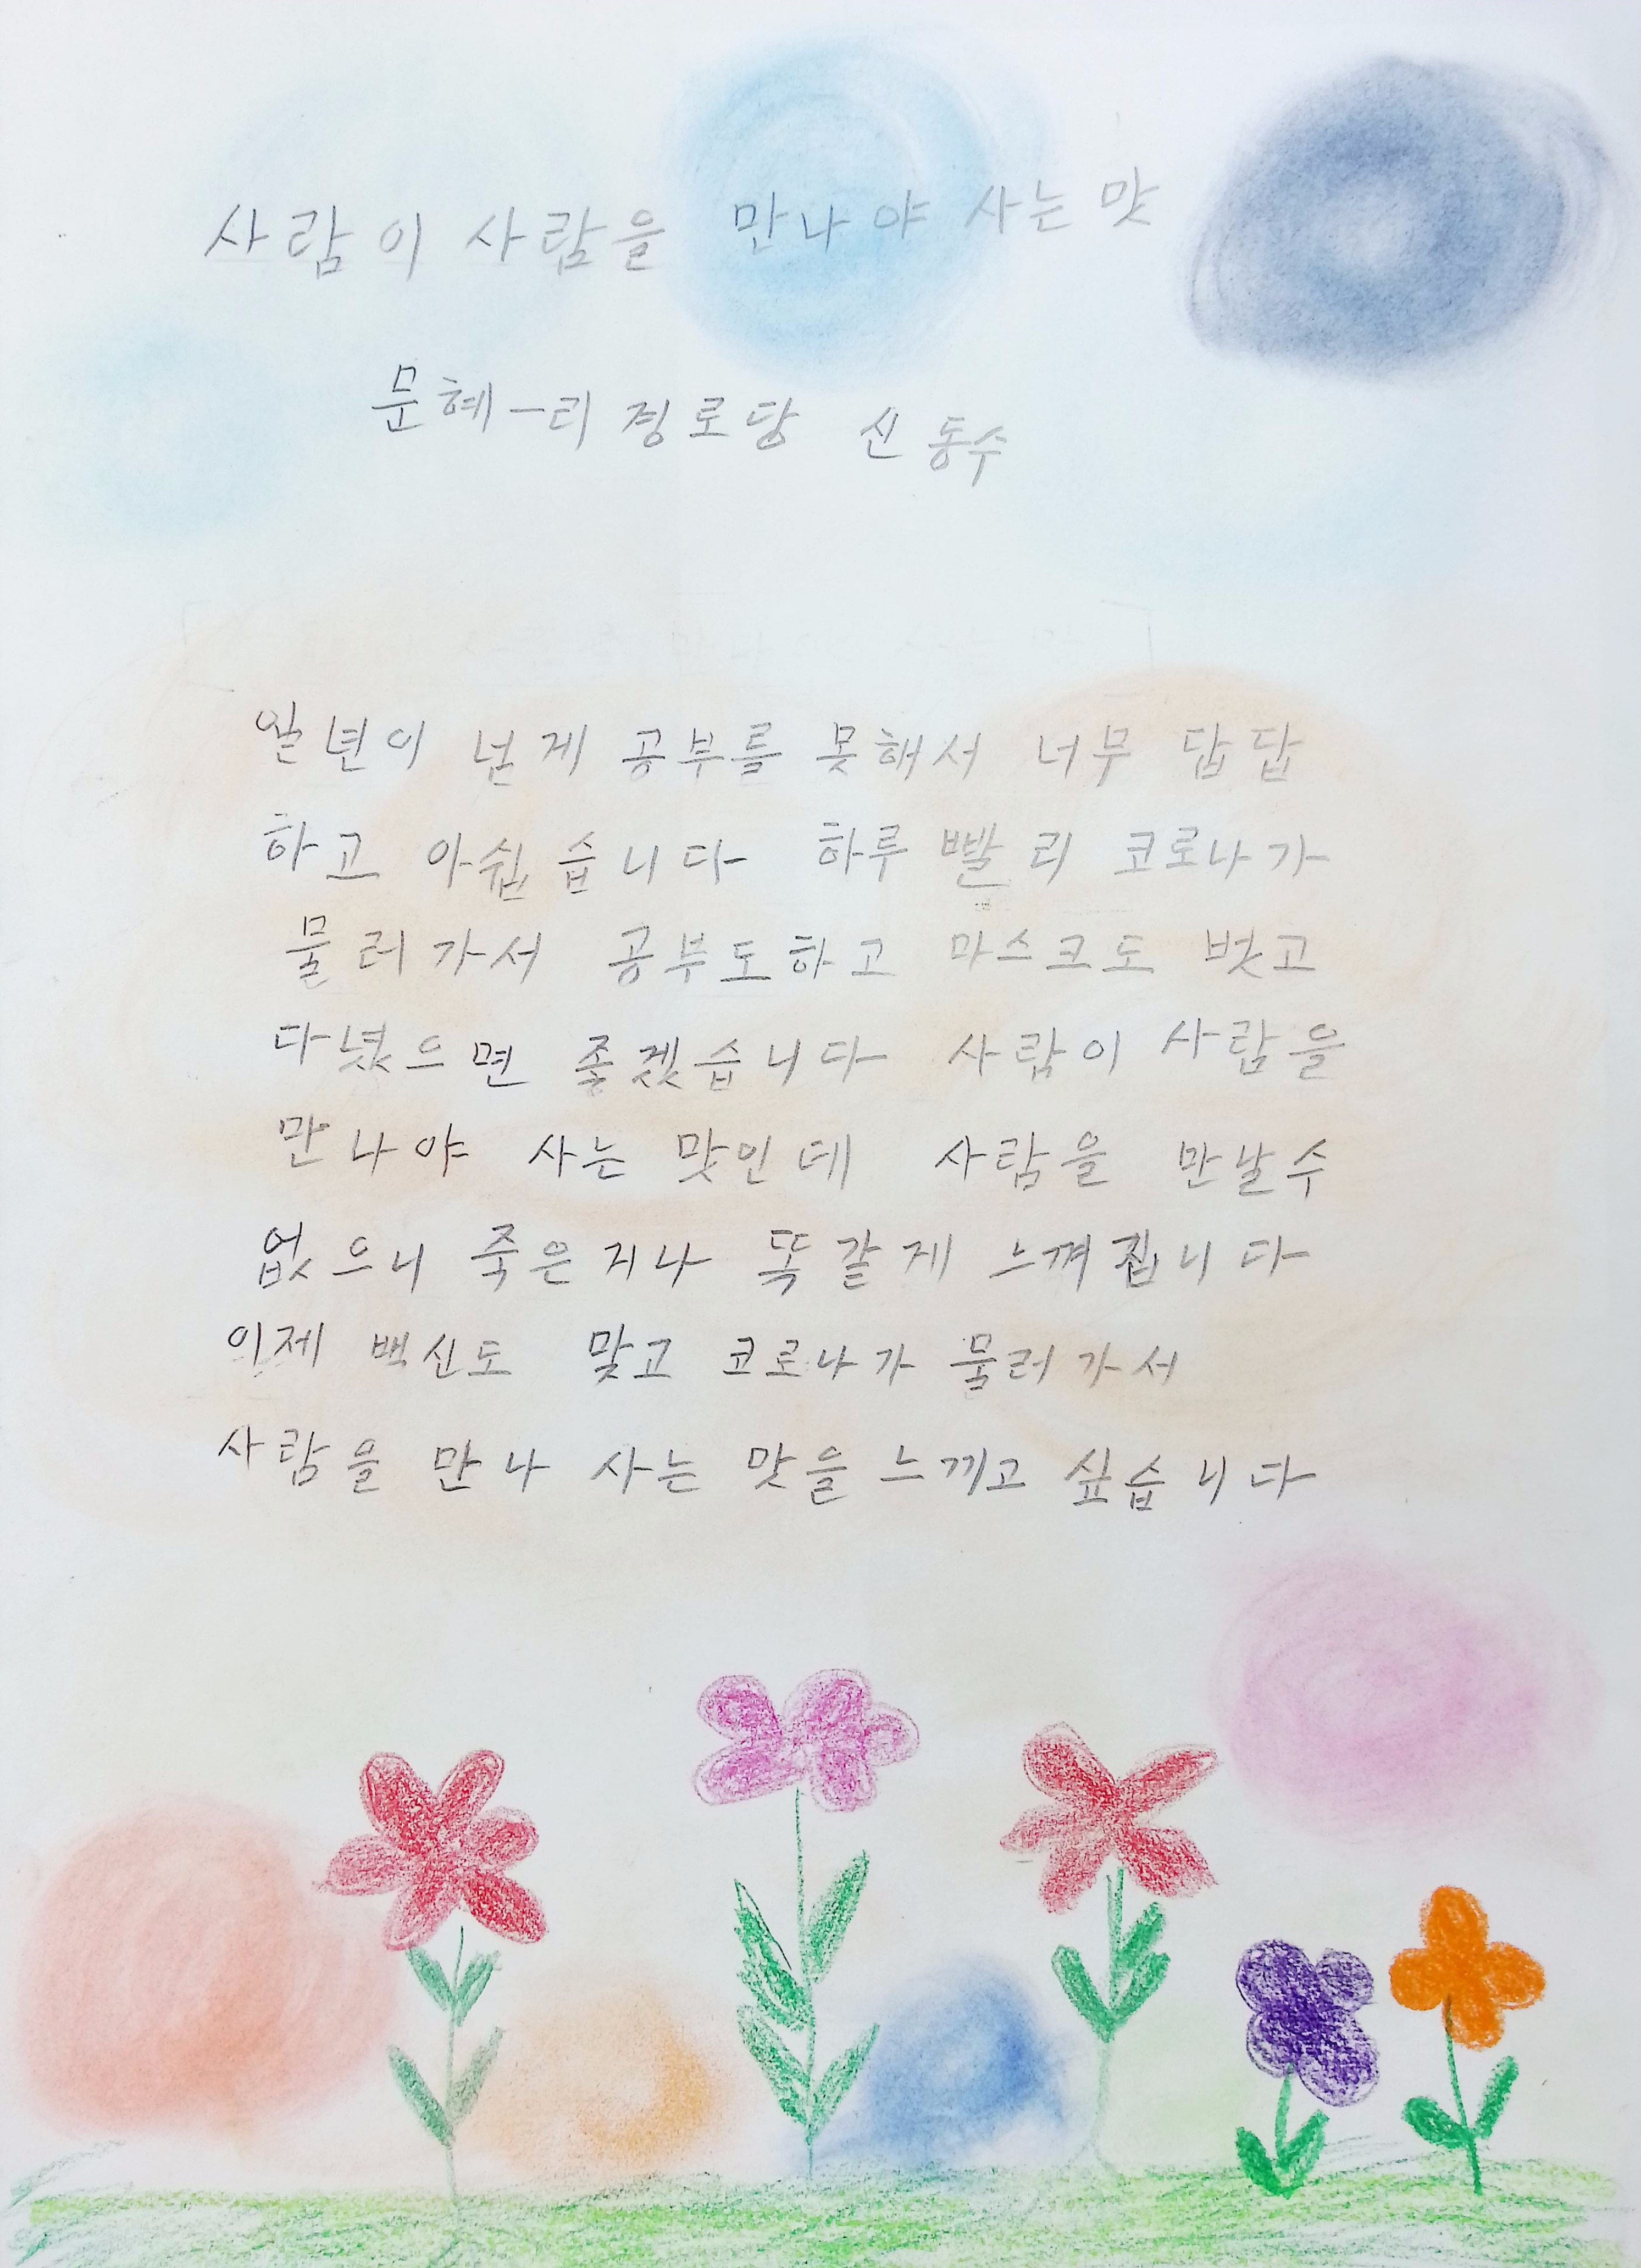 사람이 사람을 만나야 사는 맛
문혜-리 경로당 신동수
일년이 넘게 공부를 못해서 너무 답답
하고 아쉽습니다 하루 빨리 코로나가
물러가서 공부도하고 마스크도 벗고
다녔으면 좋겠습니다 사람이 사람을
만나야 사는 맛인데 사람을 만날수
없으니 죽은거나 똑같게 느껴집니다
이제 백신도 맞고 코로나가 물러가서
사람을 만나 사는 맛을 느끼고 싶습니다